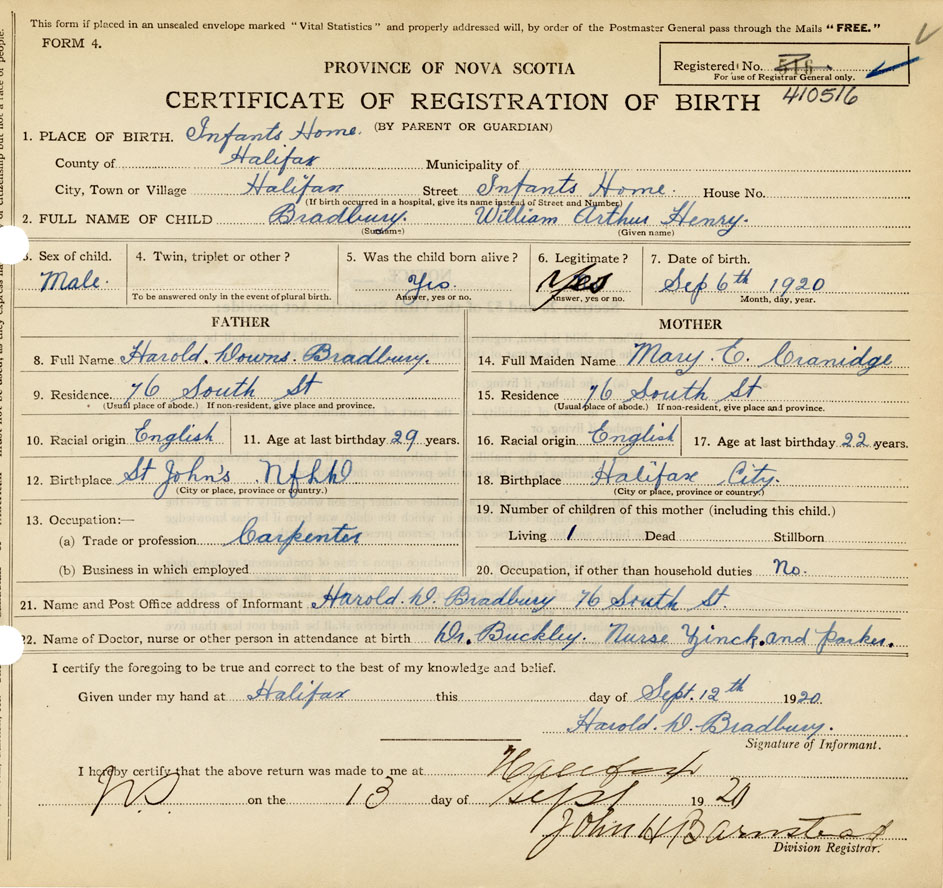 This form if placed in an unsealed envelope marked "Vital Statistics" and properly addressed will, by order of the Postmaster General pass through the Mails "FREE."
FORM 4.
Registered No. 516
For use of Registrar General only.
410516
PROVINCE OF NOVA SCOTIA
CERTIFICATE OF REGISTRATION OF BIRTH
(BY PARENT OR GUARDIAN)
1. PLACE OF BIRTH. Infants Home.
County of Halifax Municipality of
City, Town or Village Halifax Street Infants Home. House No.
(If birth occurred in a hospital, give its name instead of Street and Number)
2. FULL NAME OF CHILD Bradbury. William Arthur Henry.
(Surname) (Given name)
3. Sex of child. 4. Twin, triplet or other? 5. Was the child born alive? 6. Legitimate? 7. Date of birth.
Male. Yes. Yes Sep 6th 1920
To be answered only in the event of plural birth. Answer, yes or no. Answer, yes or no. Month, day, year.
FATHER MOTHER
8. Full Name Harold. Downs. Bradbury. 14. Full Maiden Name Mary. E. Cranidge
9. Residence. 76 South St 15. Residence 76 South St
(Usual place of abode.) If non-resident, give place and province. (Usual place of abode.) If non-resident, give place and province.
10. Racial origin English 11. Age at last birthday 29 years. 16. Racial origin English 17. Age at last birthday 22 years.
12. Birthplace St John's Nfhld 18. Birthplace Halifax City.
(City or place, province or country.) (City or place, province or country.)
13. Occupation:— 19. Number of children of this mother (including this child.)
(a) Trade or profession Carpenter Living 1 Dead Stillborn
(b) Business in which employed 20. Occupation, if other than household duties No.
21. Name and Post Office address of Informant Harold. D. Bradbury 76 South St.
22. Name of Doctor, nurse or other person in attendance at birth Dr. Buckley. Nurse Zinck. and Parker.
I certify the foregoing to be true and correct to the best of my knowledge and belief.
Given under my hand at Halifax this day of Sept. 12th 1920.
Harold. D. Bradbury.
Signature of Informant.
I hereby certify that the above return was made to me at Halifax
N.S. on the 13 day of Sept 1920
John H Barnstead
Division Registrar.